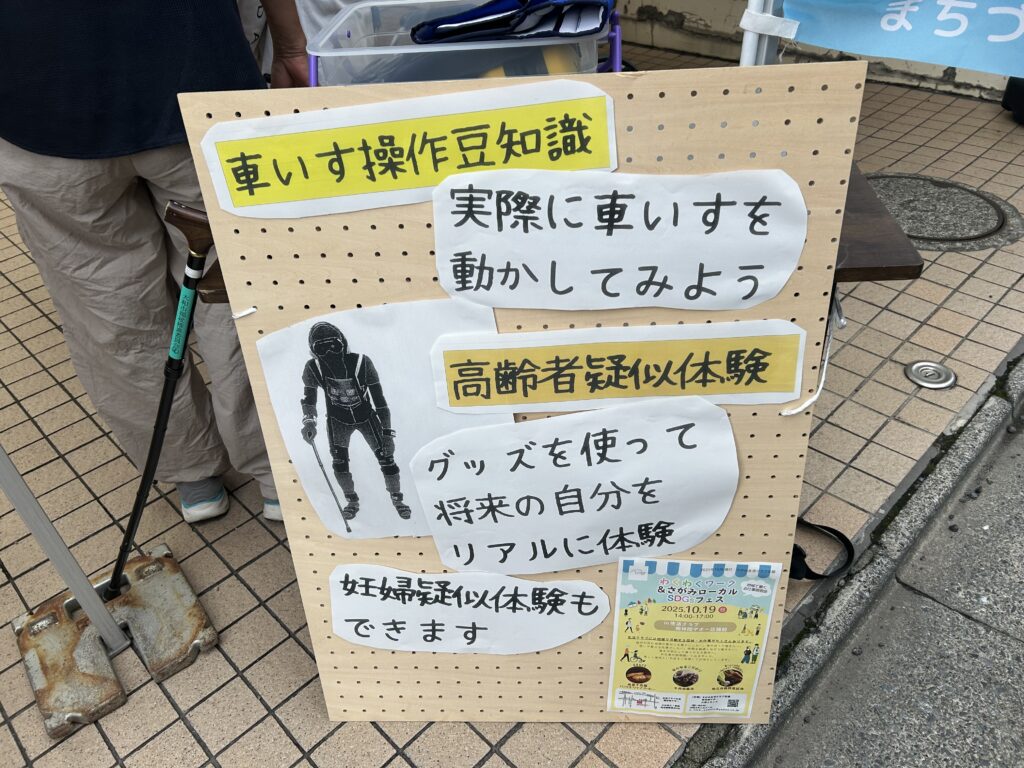 まちづ
車いす操作豆知識
実際に車いすを
動かしてみよう
高齢者疑似体験
グッズを使って
将来の自分を
リアルに体験
妊婦疑似体験も
できます
わくわくワーク
&さがみローカル
SDGsフェス
2025.10.19
14:00-17:00